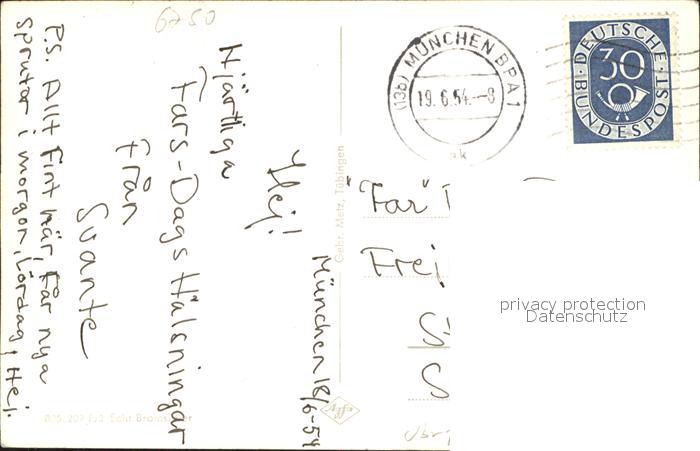 6750
München 18/6-54
Hej!
Hjärtliga
Fars-Dags Hälsningar
från
Svante
P.S. Allt fint här, får nya
sprutor i morgon, Lördag, Hej.
(13b) MÜNCHEN BPA 1
19.6.54.-8
ak
DEUTSCHE
30
BUNDESPOST
"Far"
Frei
Gebr. Metz, Tübingen
Agfa
Echt
privacy protection
Datenschutz